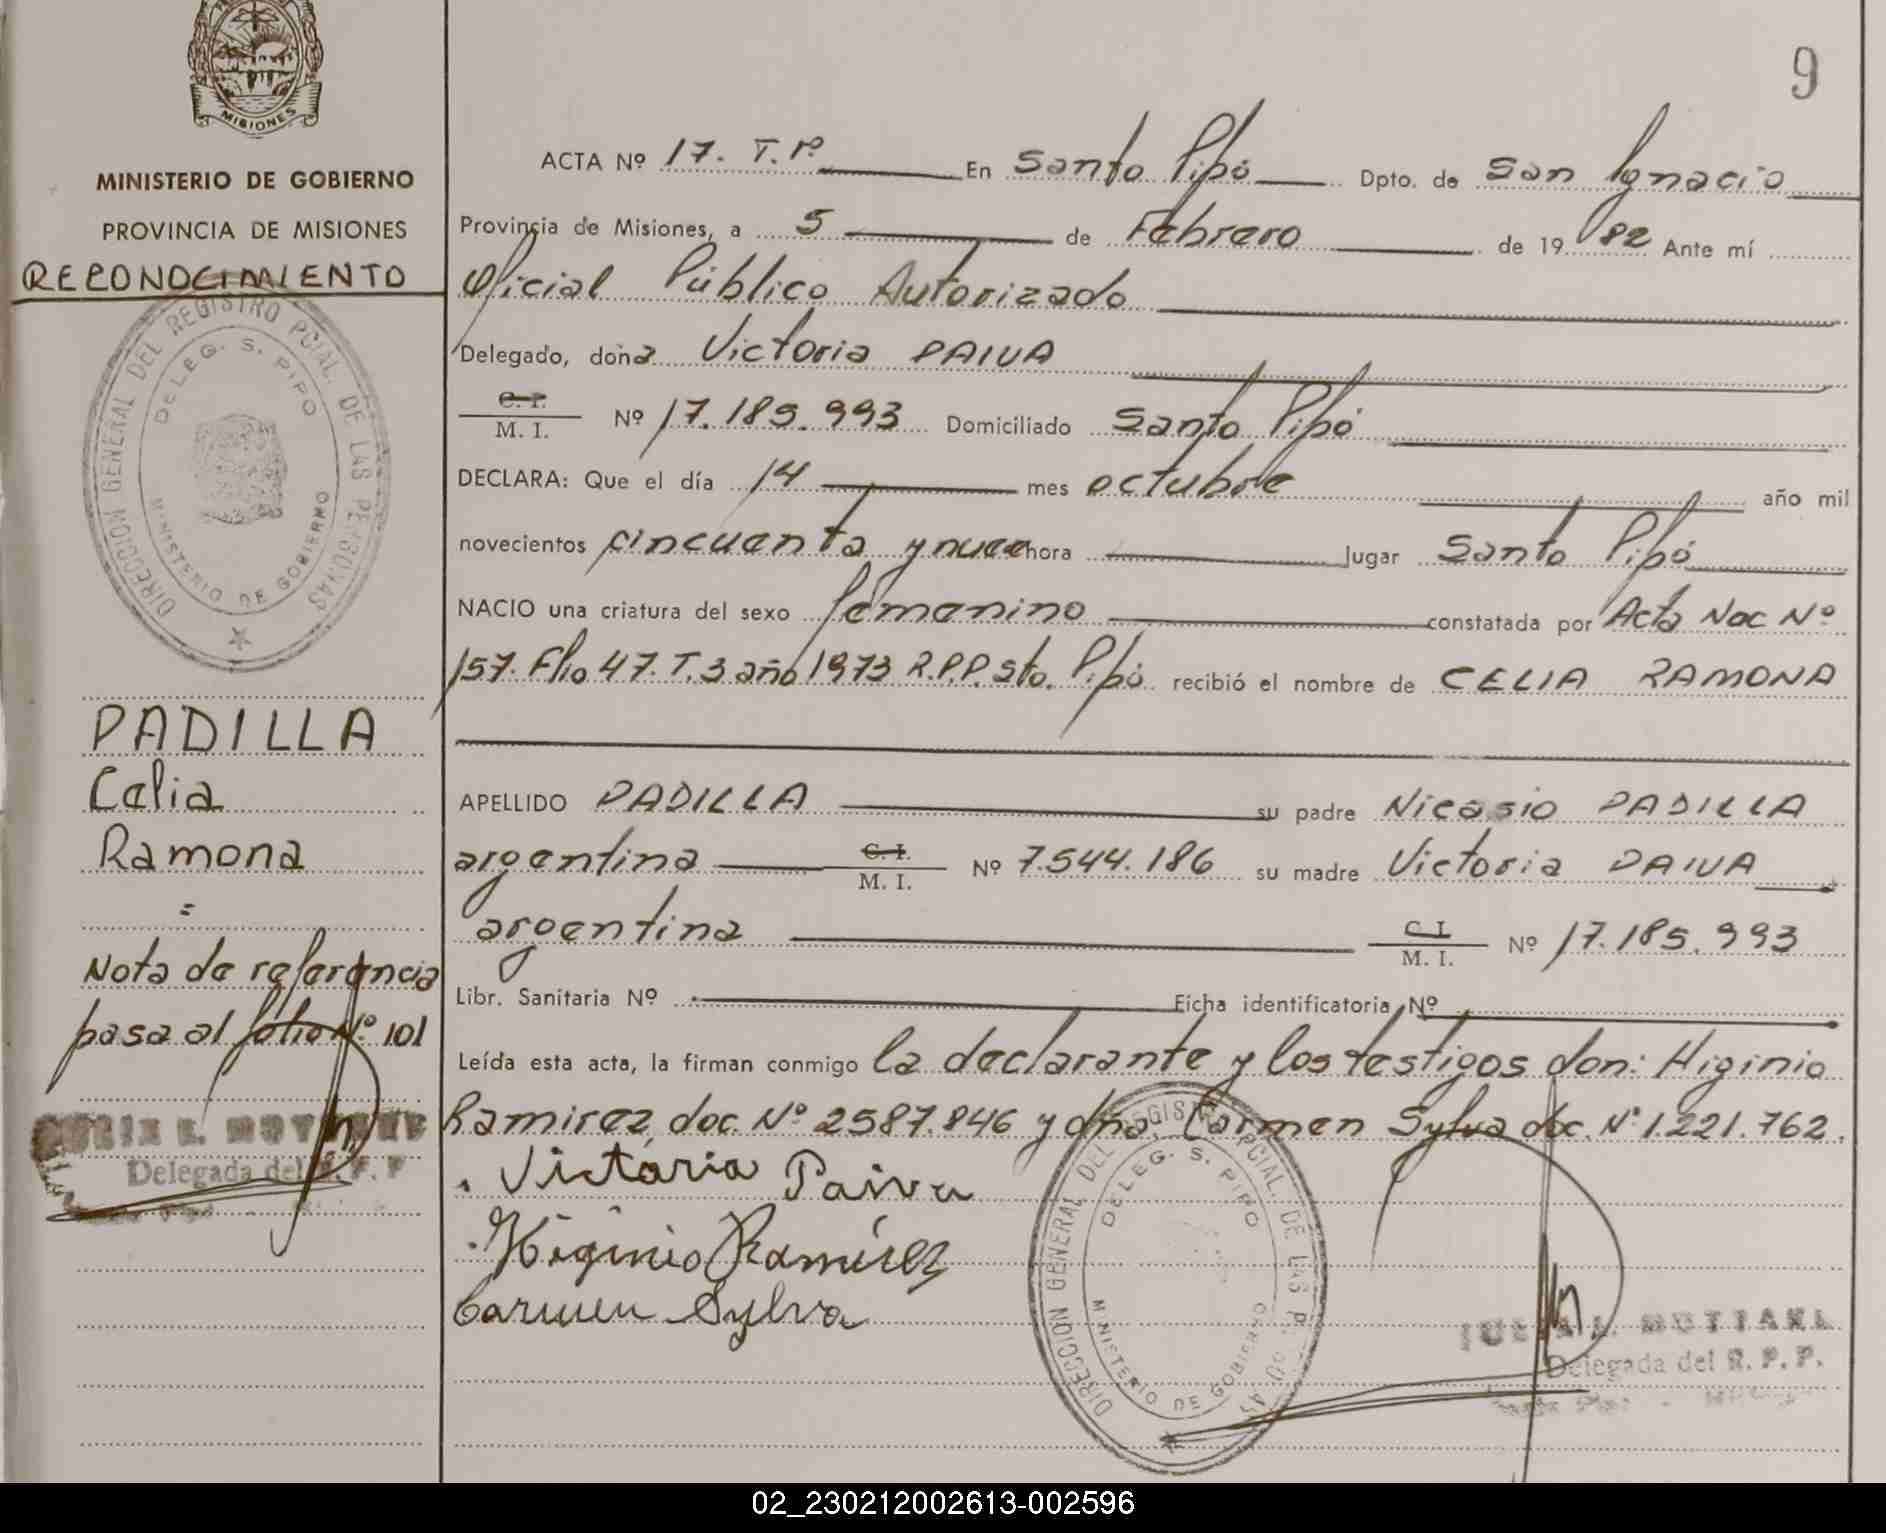 9
MISIONES
MINISTERIO DE GOBIERNO
PROVINCIA DE MISIONES
RECONOCIMIENTO
DIRECCION GENERAL DEL REGISTRO PCIAL. DE LAS PERSONAS
DELEG. S. PIPO
MINISTERIO DE GOBIERNO
PADILLA
Celia
Ramona
=
Nota de referencia
pasa al folio Nº 101
Delegada del R. P. P
ACTA Nº 17. T.1º En Santo Pipó Dpto. de San Ignacio
Provincia de Misiones, a 5 de Febrero de 1982 Ante mí
Oficial Público Autorizado
Delegado, doña Victoria PAIVA
C. I.
M. I. Nº 17.185.993 Domiciliado Santo Pipó
DECLARA: Que el día 14 mes octubre año mil
novecientos cincuenta y nueve hora lugar Santo Pipó
NACIO una criatura del sexo femenino constatada por Acta Nac Nº
157. Flio 47. T. 3 año 1973 R.P.P. Sto. Pipó recibió el nombre de CELIA RAMONA
APELLIDO PADILLA su padre Nicasio PADILLA
argentina C. I. M. I. Nº 7.544.186 su madre Victoria PAIVA
argentina C. I. M. I. Nº 17.185.993
Libr. Sanitaria Nº Ficha identificatoria Nº
Leída esta acta, la firman conmigo la declarante y los testigos don: Higinio
Ramirez, doc. Nº 2587.846 y dña. Carmen Sylva doc. Nº 1.221.762.
Victoria Paiva
Higinio Ramírez
Carmen Sylva
DIRECCION GENERAL DEL REGISTRO PCIAL. DE LAS PERSONAS
DELEG. S. PIPO
MINISTERIO DE GOBIERNO
Delegada del R. P. P.
02_230212002613-002596